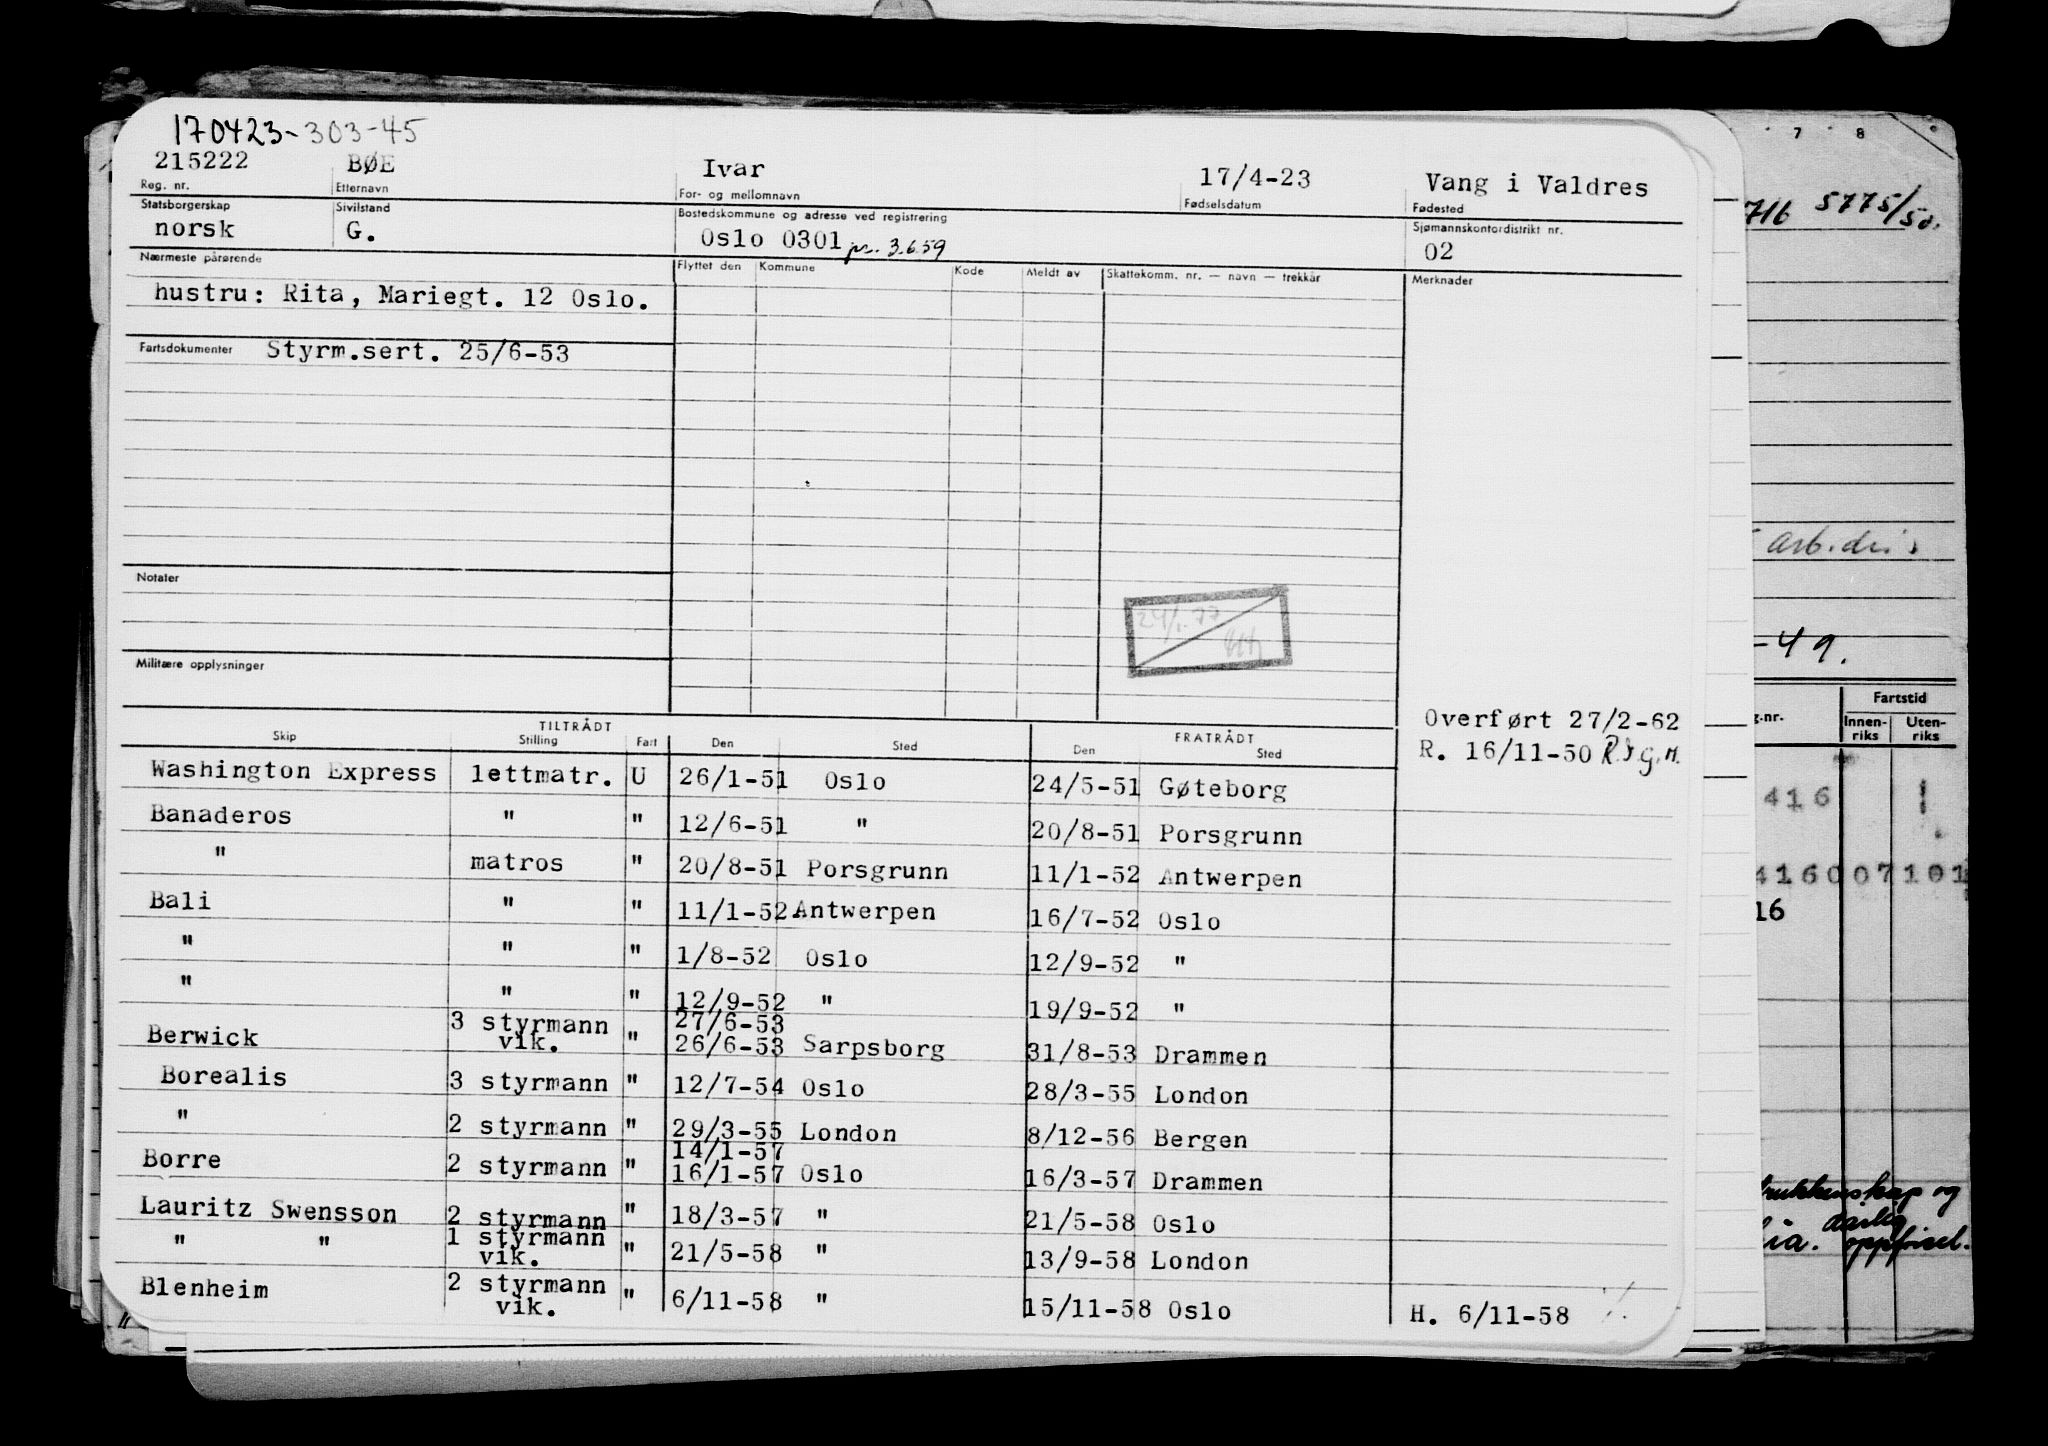 170423-303-45
215222 BØE Ivar 17/4-23 Vang i Valdres
Reg. nr. Etternavn For- og mellomnavn Fødselsdatum Fødested
Statsborgerskap Sivilstand Bostedskommune og adresse ved registrering Sjømannskontordistrikt nr.
norsk G. Oslo 0301 pr. 3.6.59 02
Nærmeste pårørende Flyttet den Kommune Kode Meldt av Skattekomm. nr. — navn — trekkår Merknader
hustru: Rita, Mariegt. 12 Oslo.
Fartsdokumenter Styrm.sert. 25/6-53
Notater
24/1-77
Militære opplysninger
Overført 27/2-62
R. 16/11-50
TILTRÅDT FRATRÅDT
Skip Stilling Fart Den Sted Den Sted
Washington Express lettmatr. U 26/1-51 Oslo 24/5-51 Gøteborg
Banaderos " " 12/6-51 " 20/8-51 Porsgrunn
" matros " 20/8-51 Porsgrunn 11/1-52 Antwerpen
Bali " " 11/1-52 Antwerpen 16/7-52 Oslo
" " " 1/8-52 Oslo 12/9-52 "
" " " 12/9-52 " 19/9-52 "
3 styrmann 27/6-53
Berwick vik. " 26/6-53 Sarpsborg 31/8-53 Drammen
Borealis 3 styrmann " 12/7-54 Oslo 28/3-55 London
" 2 styrmann " 29/3-55 London 8/12-56 Bergen
14/1-57
Borre 2 styrmann " 16/1-57 Oslo 16/3-57 Drammen
Lauritz Swensson 2 styrmann " 18/3-57 " 21/5-58 Oslo
1 styrmann
" " vik. " 21/5-58 " 13/9-58 London
2 styrmann
Blenheim vik. " 6/11-58 " 15/11-58 Oslo H. 6/11-58
7 8
716 5775/50.
arb.
-49.
g.nr. Fartstid
Innen-riks Uten-riks
416
416 007101
16
drukkenskap og
dårlig
oppførsel.